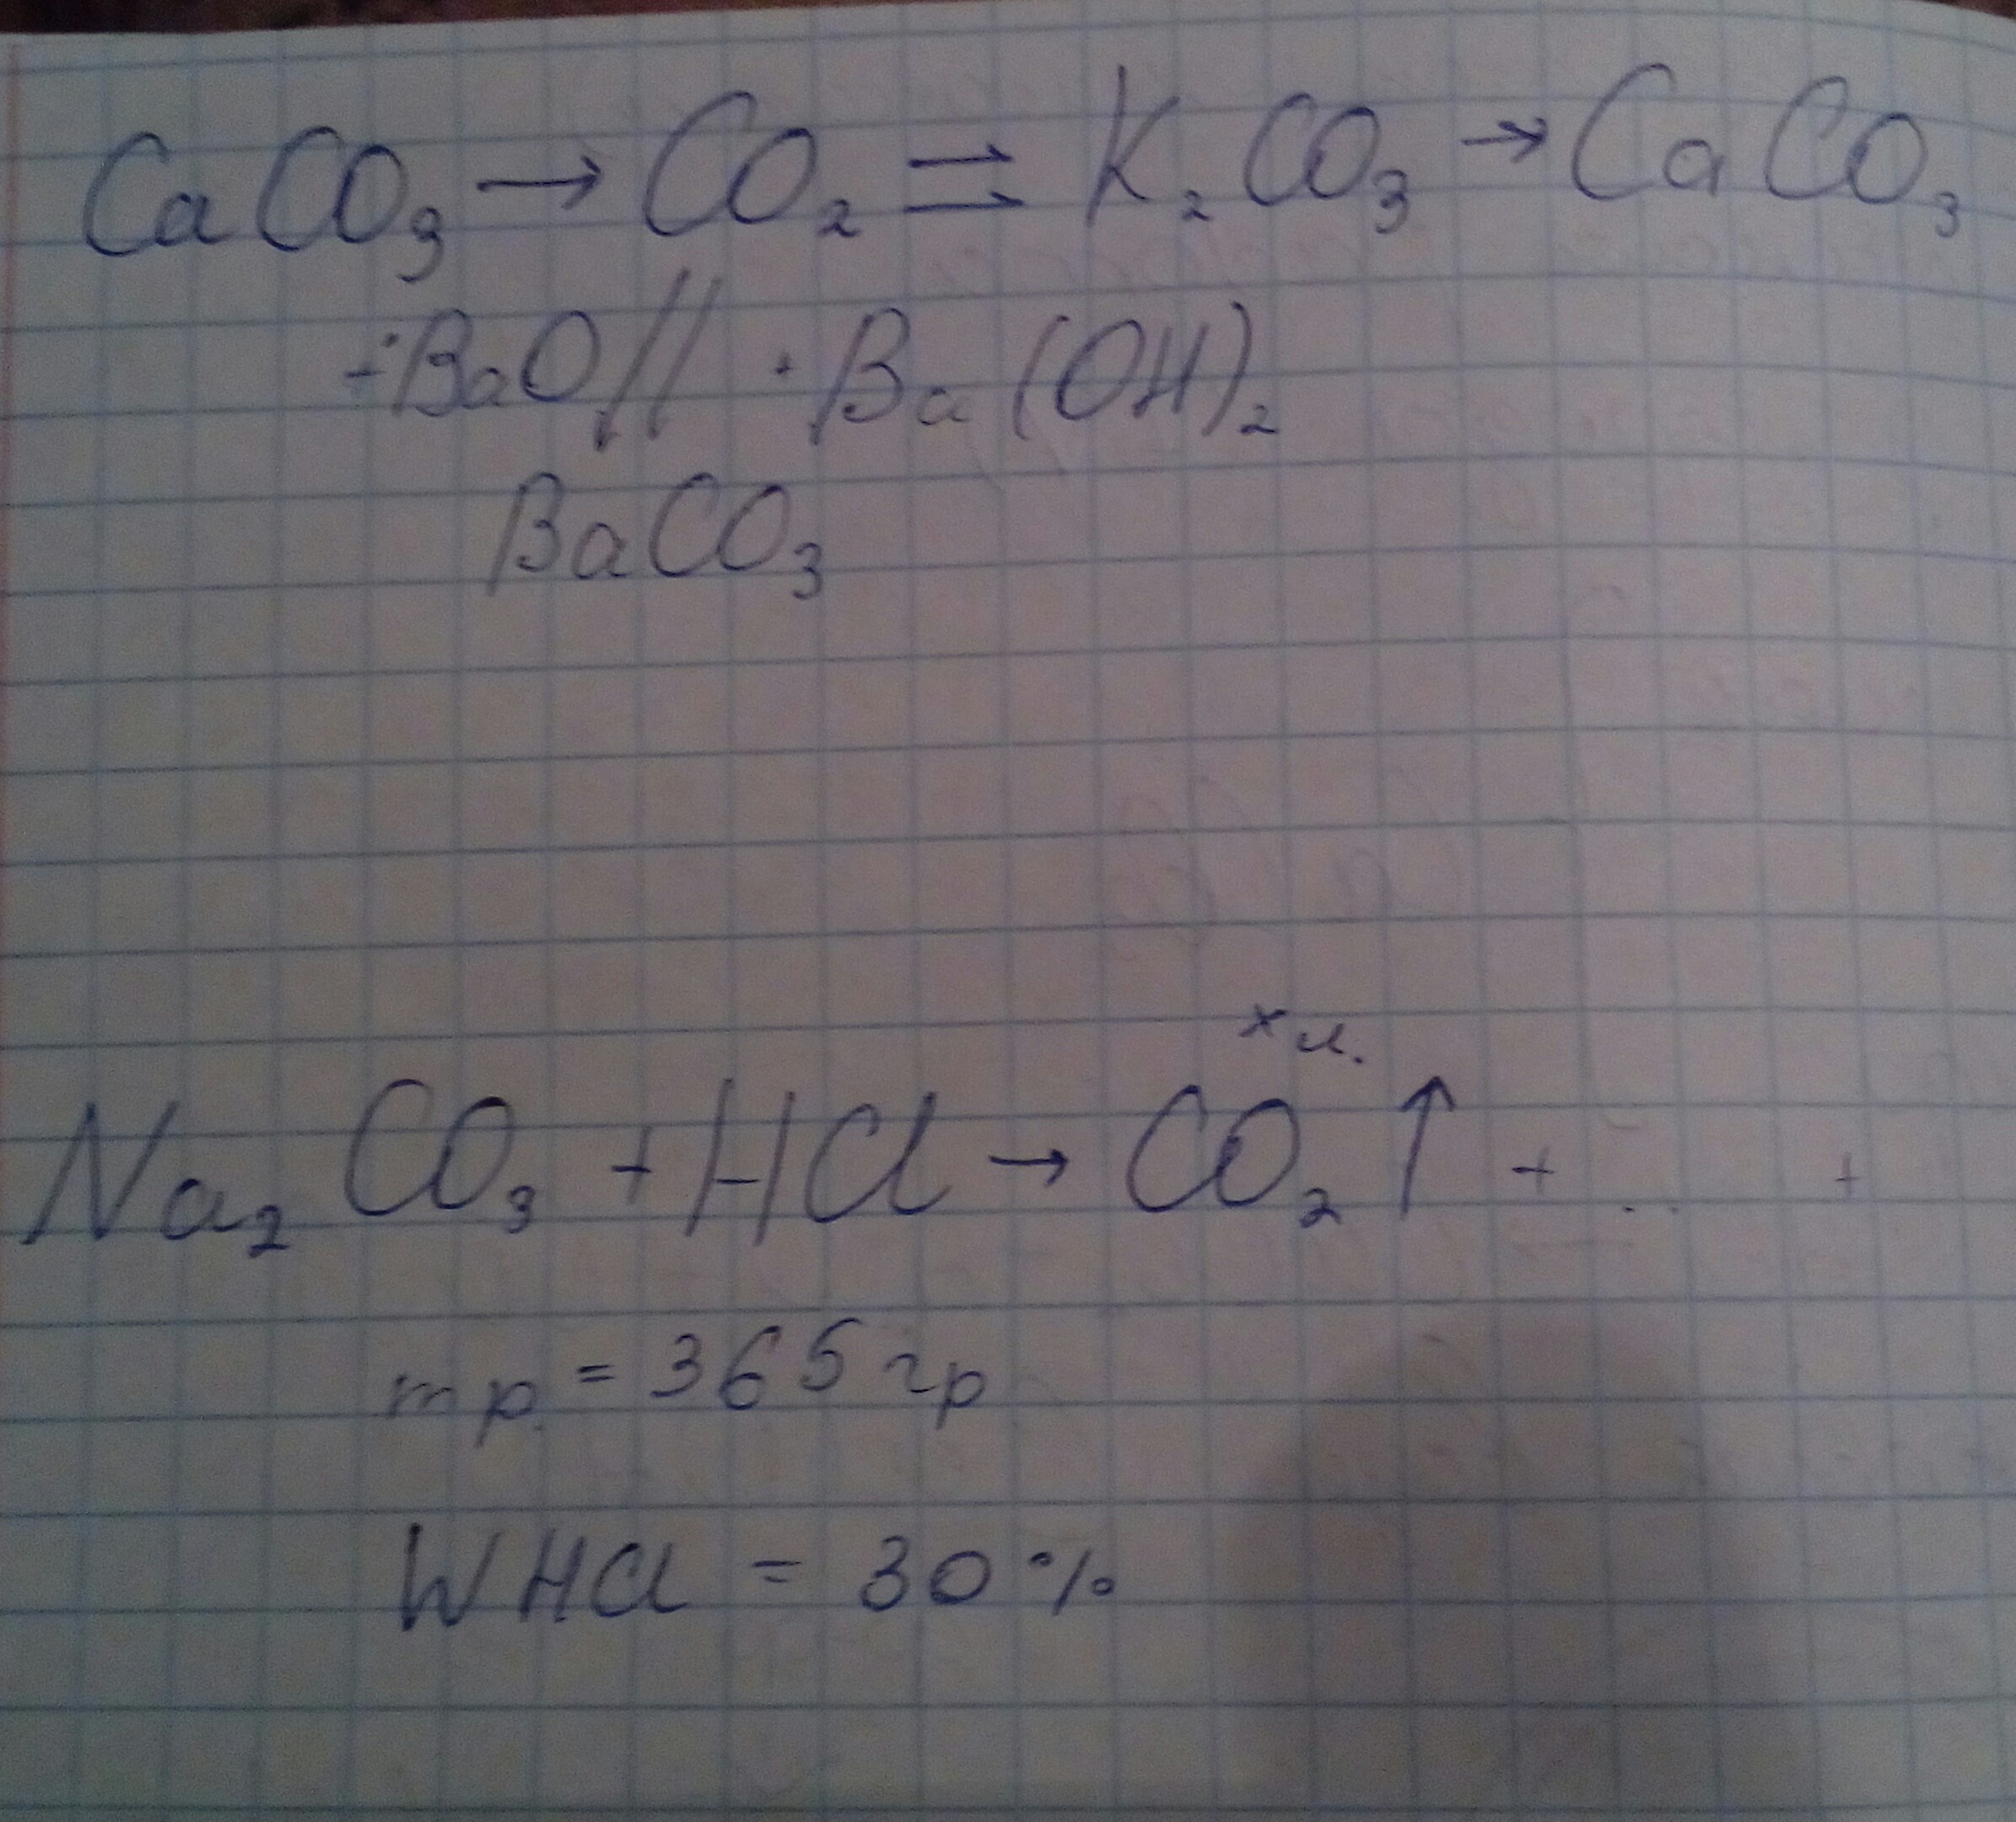 CaCO₃ → CO₂ ⇉ K₂CO₃ → CaCO₃
+BaO // + Ba(OH)₂
BaCO₃
x л.
Na₂CO₃ + HCl → CO₂↑ + ... +
mр. = 365 гр
WHCl = 30%